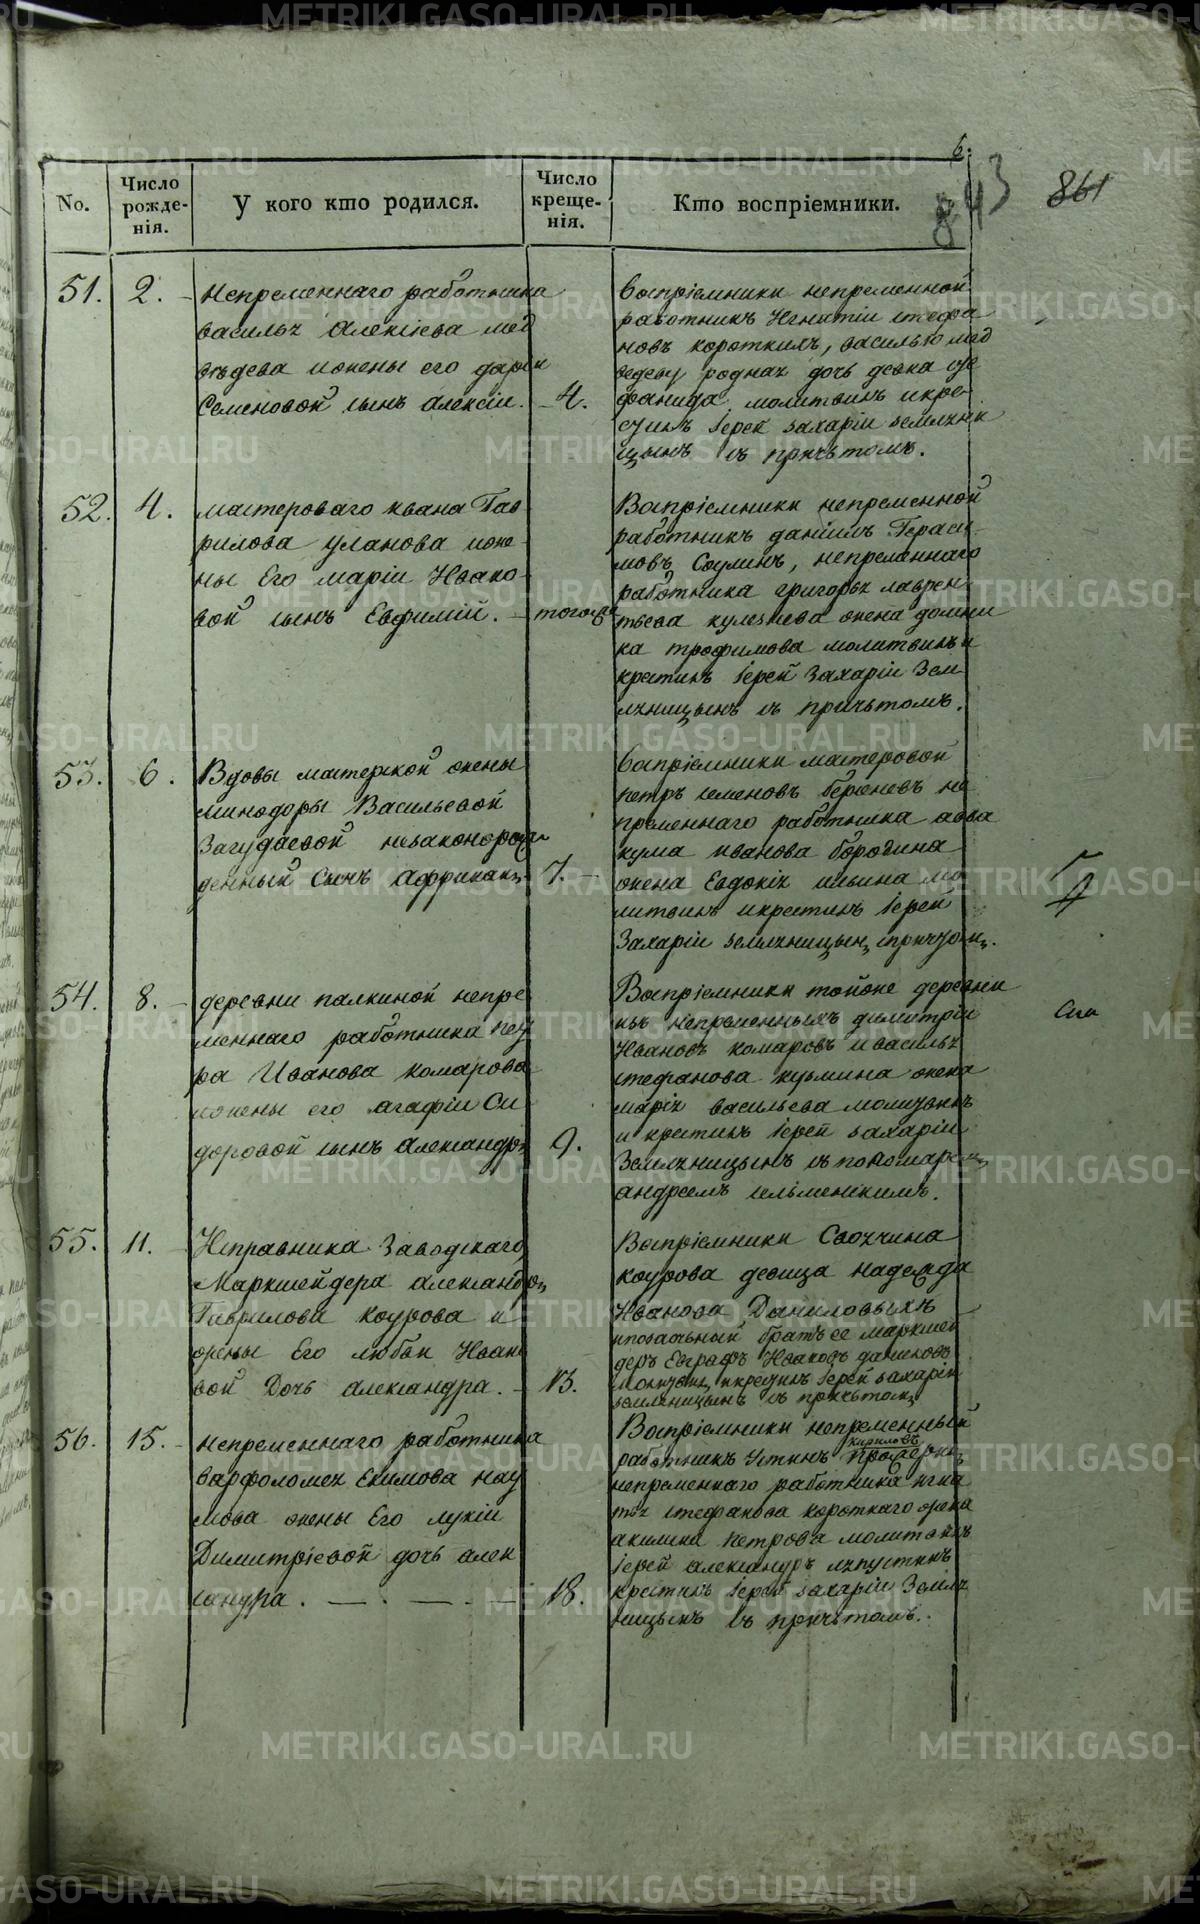 6.
843
861
No.
Число рожде-нія.
У кого кто родился.
Число креще-нія.
Кто воспріемники.
51.
2.
непременнаго работника
василья Алексіева мед
ведева ижены его дарьи
Семеновой сынъ Алексіи.
4.
воспріемники непременной
работникъ Игнатіи стефа
новъ короткихъ, василью мед
ведеву родная дочь девка
молитвилъ икре
стилъ іерей захаріи землени
цынъ съ причьтомъ.
52.
4.
мастероваго ивана Гав
рилова уланова иже-
ны Его маріи Ивано-
вой сынъ Евфимій.
тогоже
Воспріемники непременной
работникъ даніилъ Гераси-
мовъ непременнаго
работника григорья лаврен-
тьева жена домни
ка трофимова молитвилъ и
крестилъ іерей Захаріи Зем
ляницынъ съ причьтомъ.
53.
6.
Вдовы мастерской жены
минодоры Васильевой
Загудаевой незаконорож-
денный Сынъ Африканъ
7.
воспріемники мастеровой
петръ семеновъ не
пременнаго работника авва
кума иванова бородина
жена Евдокія ильина мо
литвилъ икрестилъ іерей
Захаріи земляницынъ спричтомъ.
54.
8.
деревни палкиной непре
меннаго работника пет
ра Иванова комарова
ижены его агафіи Си
доровой сынъ Александръ
9.
Воспріемники тойже деревни
непременныхъ димитріи
Ивановъ комаровъ и василья
стефанова кузмина жена
марія васильева молитвилъ
и крестилъ іерей захаріи
Земляницынъ съ пономаремъ
андреемъ
55.
11.
Исправника Заводскаго
Маркшейдера александра
Гаврилова коурова и
жены Его любви Ивано
вой Дочь александра.
13.
Воспріемники
коурова девица надежда
Иванова Даниловыхъ
братъ ее маркшей
деръ Евграфъ Ивановъ даниловъ
молитвилъ икрестилъ іерей захаріи
земляницынъ съ причьтомъ
56.
15.
непременнаго работника
варфоломея Екимова нау
мова жены Его лукіи
Димитріевой дочь алек
сандра.
18.
Воспріемники непременный
кириловъ
работникъ Устинъ
непременнаго работника игна
тія стефанова короткаго жена
акилина петрова молитвилъ
іерей александръ
крестилъ іерей захаріи Земля
ницынъ съ причьтомъ.